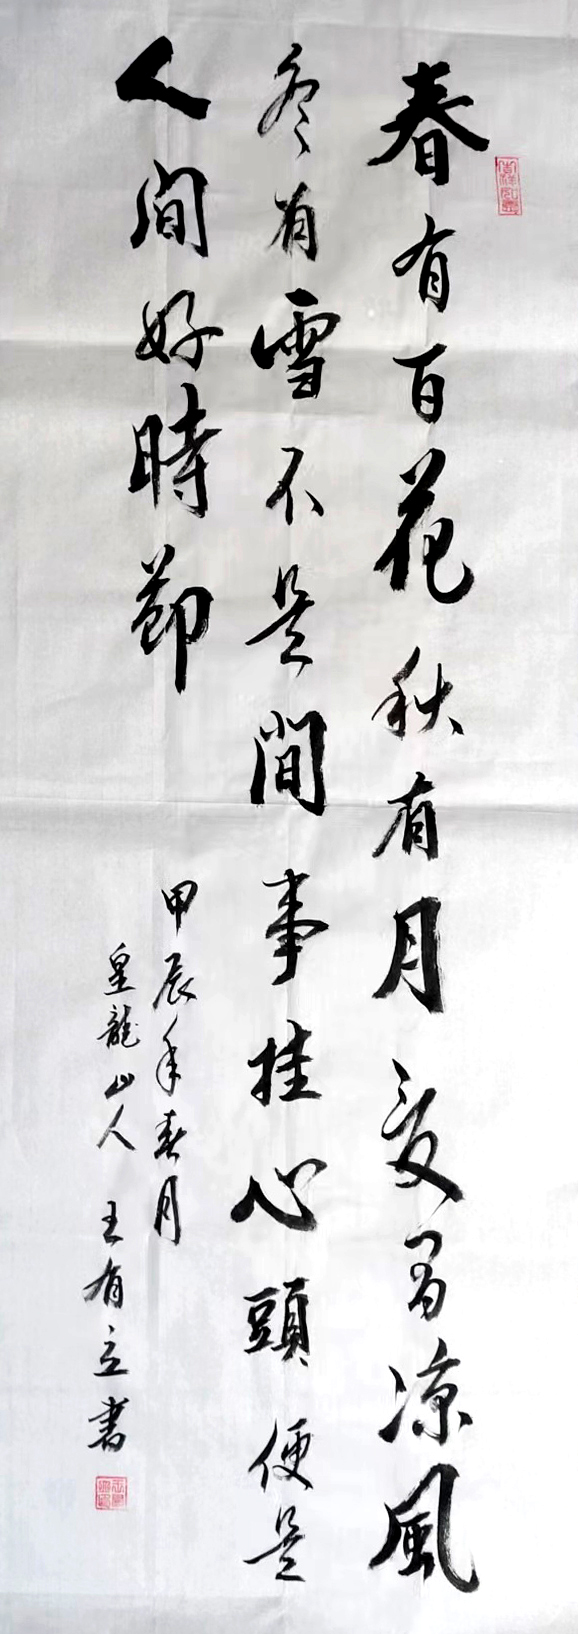 春有百花秋有月夏有凉風
冬有雪不是間事挂心頭便是
人間好時節
甲辰年春月
皇龍山人 王有立書